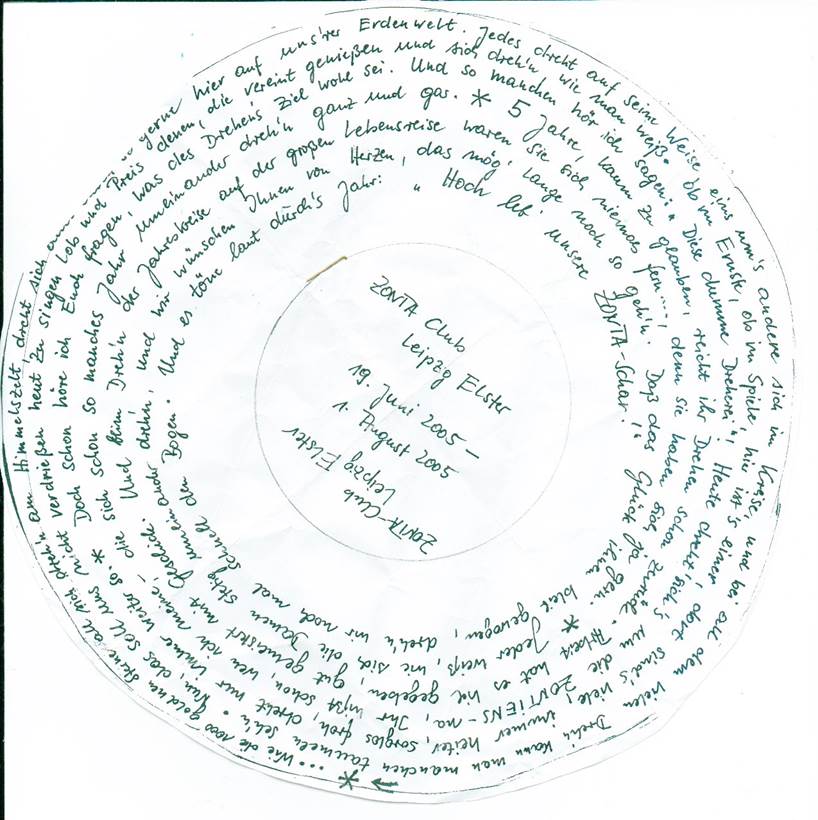 → * ... Wie die 1000 goldnen Sterne all sich dreh'n am Himmelszelt dreht sich gerne hier auf uns'rer Erdenwelt. Jedes dreht auf seine Weise eins um's andere sich im Kreise, und bei all dem vielen Dreh'n kann man manchen taumeln seh'n.
Nun, das soll uns nicht verdrießen heut' zu singen Lob und Preis denen, die vereint genießen und sich dreh'n wie man weiß. Ob im Ernste, ob im Spiele hie ist's einer, dort sind's viele, immer heiter, sorglos froh, dreht nur
immer weiter so. * Doch schon höre ich Euch fragen, was des Drehens Ziel wohl sei. Und so manchen hör ich sagen: "Diese dumme Dreherei"! Heute dreht sich's um die ZONTIENS - na, Ihr wißt schon, wen ich meine, -
die sich schon so manches Jahr umeinander dreh'n ganz und gar. * 5 Jahre, kaum zu glauben, reicht ihr Drehen schon zurück. Arbeit hat es viel gegeben, gut gemeistert mit Geschick.
Und beim Dreh'n der Jahreskreise auf der großen Lebensreise waren sie sich niemals fern..., denn sie haben sich ja gern. * Jeder weiß, wie sich die Damen stetig umeinander
drehn, und wir wünschen Ihnen von Herzen, das mög' lange noch so geh'n. Daß das Glück ihnen bleib gewogen, dreh'n wir noch mal schnell den
Bogen. Und es töne laut durch's Jahr: "Hoch leb' unsere ZONTA-Schar!"
ZONTA Club
Leipzig Elster
19. Juni 2005 –
1. August 2005
ZONTA-Club
Leipzig ELSTER